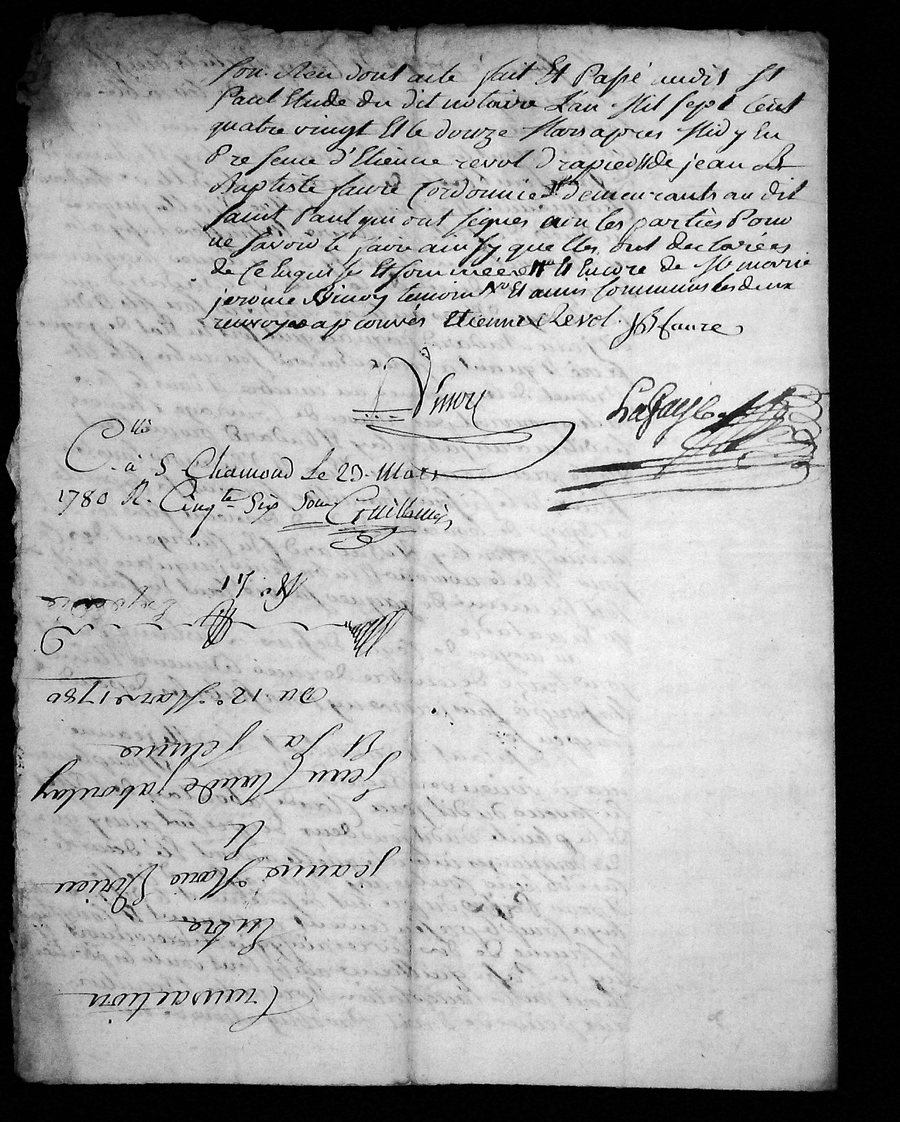 son. Rien dont acte fait Et Passé audit St
Paul Etude du dit notaire L'an Mil sept Cent
quatre vingt Et le douze Mars apres Midy En
Presence d'Etienne revol drapier de jean
Baptiste faure Cordonnier demeurants au dit
saint Paul qui ont signés non les parties Pour
ne savoir le faire ainsy quelles ont declarées
de ce Enquise Et sommées Et Encore de Me marie
jerome Vimoy temoin Et amis Communs les deux
renvoys approuvés Etienne Revol. JB faure
Vimoy
Lafaye
Clle
à S Chamond Le 23. Mars
1780 R. Cinqte Six Sous
Transaction
Entre
jeanne Marie
Et
Jean Claude jaboulay
Et Sa femme
Du 12e Mars 1780
Expediée